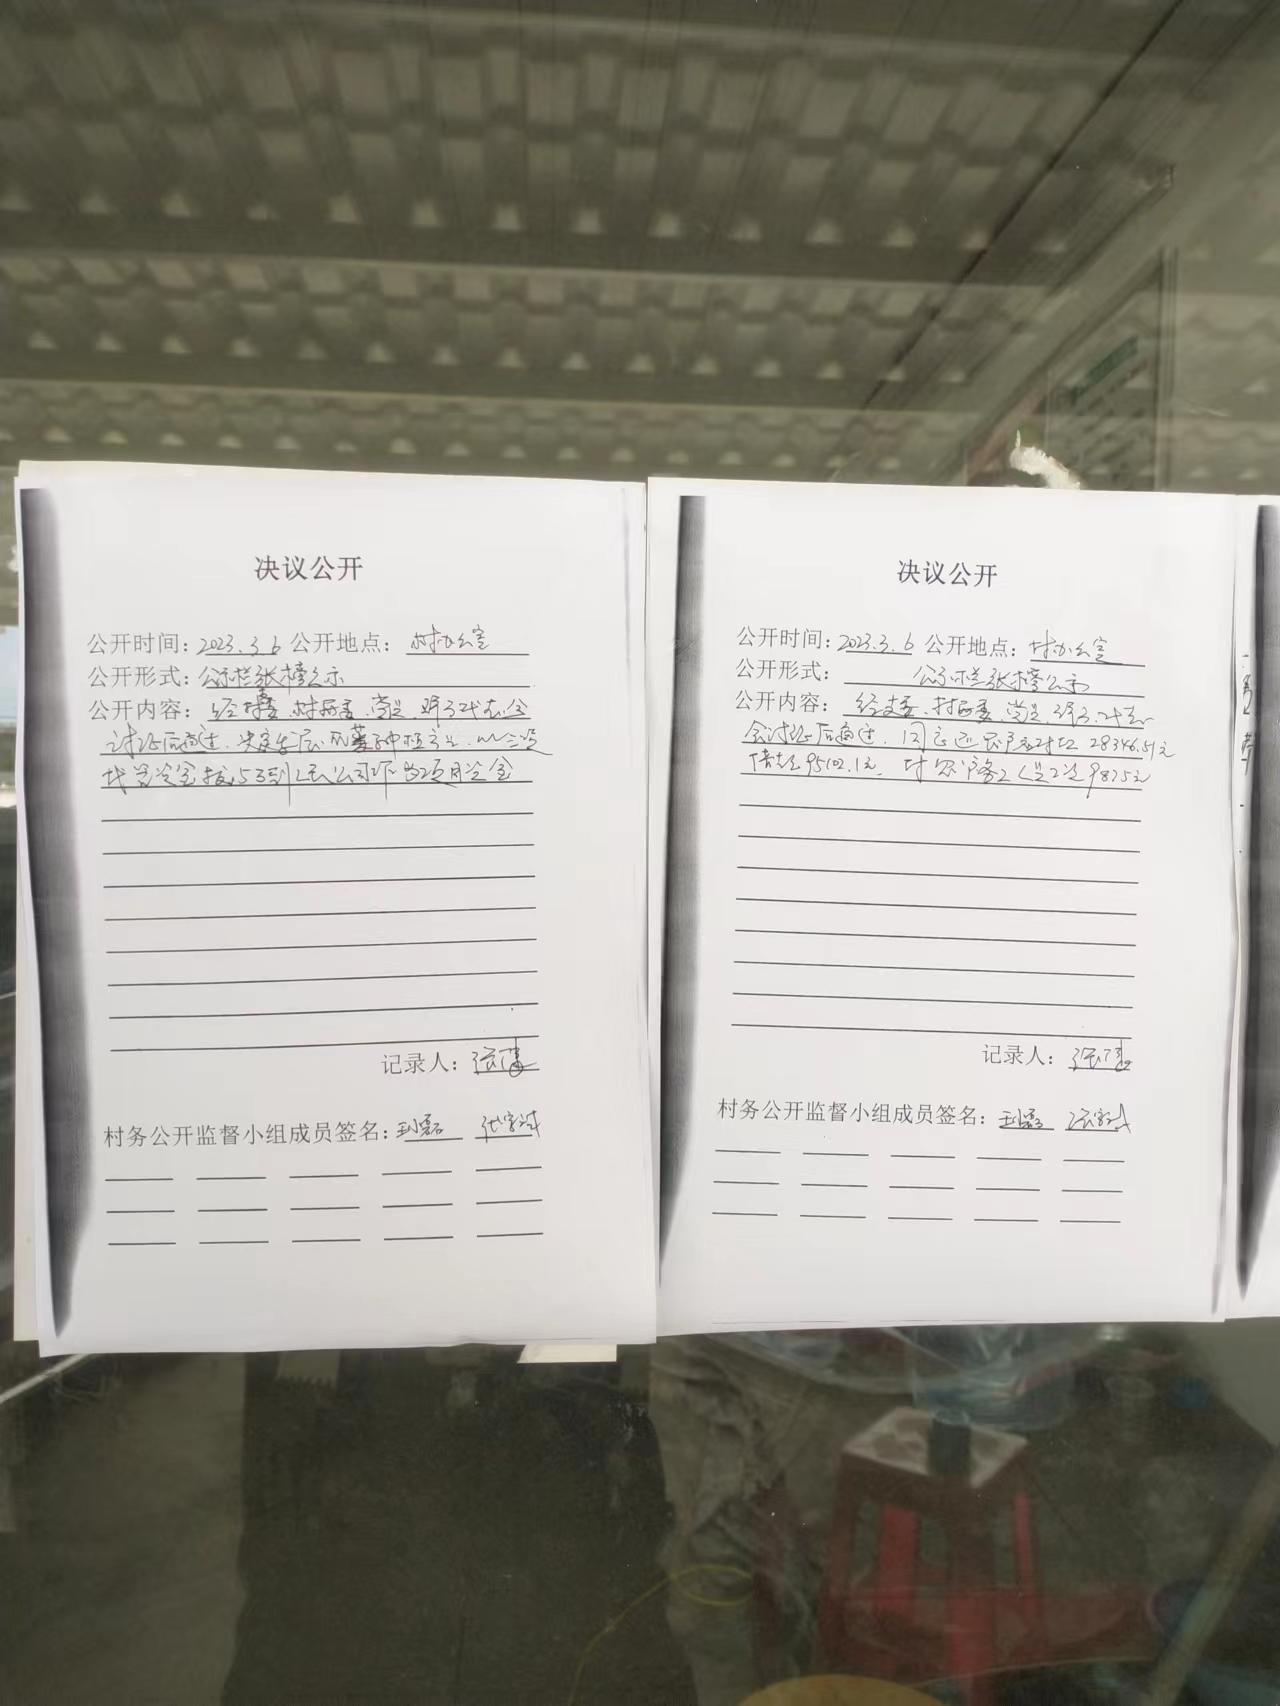 决议公开
公开时间：2023.3.6 公开地点：村办公室
公开形式：公示栏张榜公示
公开内容：经支委、村委、党员、群众代表会
讨论后通过，决定发展 种植产业，以
资金拨 到 公司作为项目资金
记录人：张
村务公开监督小组成员签名：王磊 张家斌
决议公开
公开时间：2023.3.6 公开地点：村办公室
公开形式：公示栏张榜公示
公开内容：经支委、村委、党员、群众代表
会讨论后通过，同意还 28346.51元
借款95102.1元，付 务工人员工资9875元
记录人：张
村务公开监督小组成员签名：王磊 张家斌